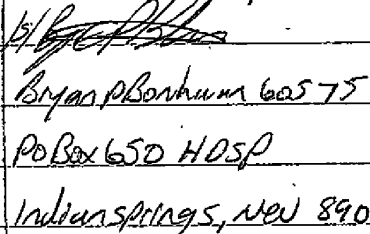 /s/
Bryan P Bonham 60575
PO Box 650 HDSP
Indian Springs, Nev 890